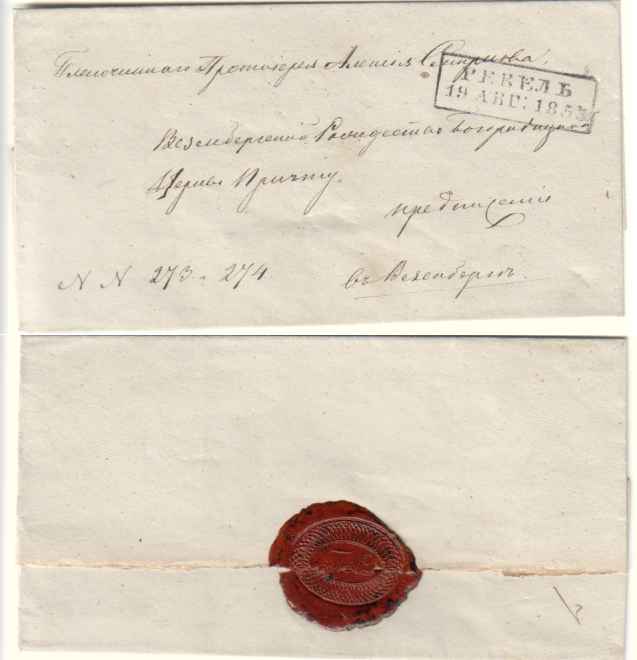 Благочиннаго Протоіерея Алексія
РЕВЕЛЬ
19 АВГ: 1853
Везенбергской Рождества Богородицкой
Церкви Причту.
предписаніе
N N 273 - 274
въ Везенбергъ.